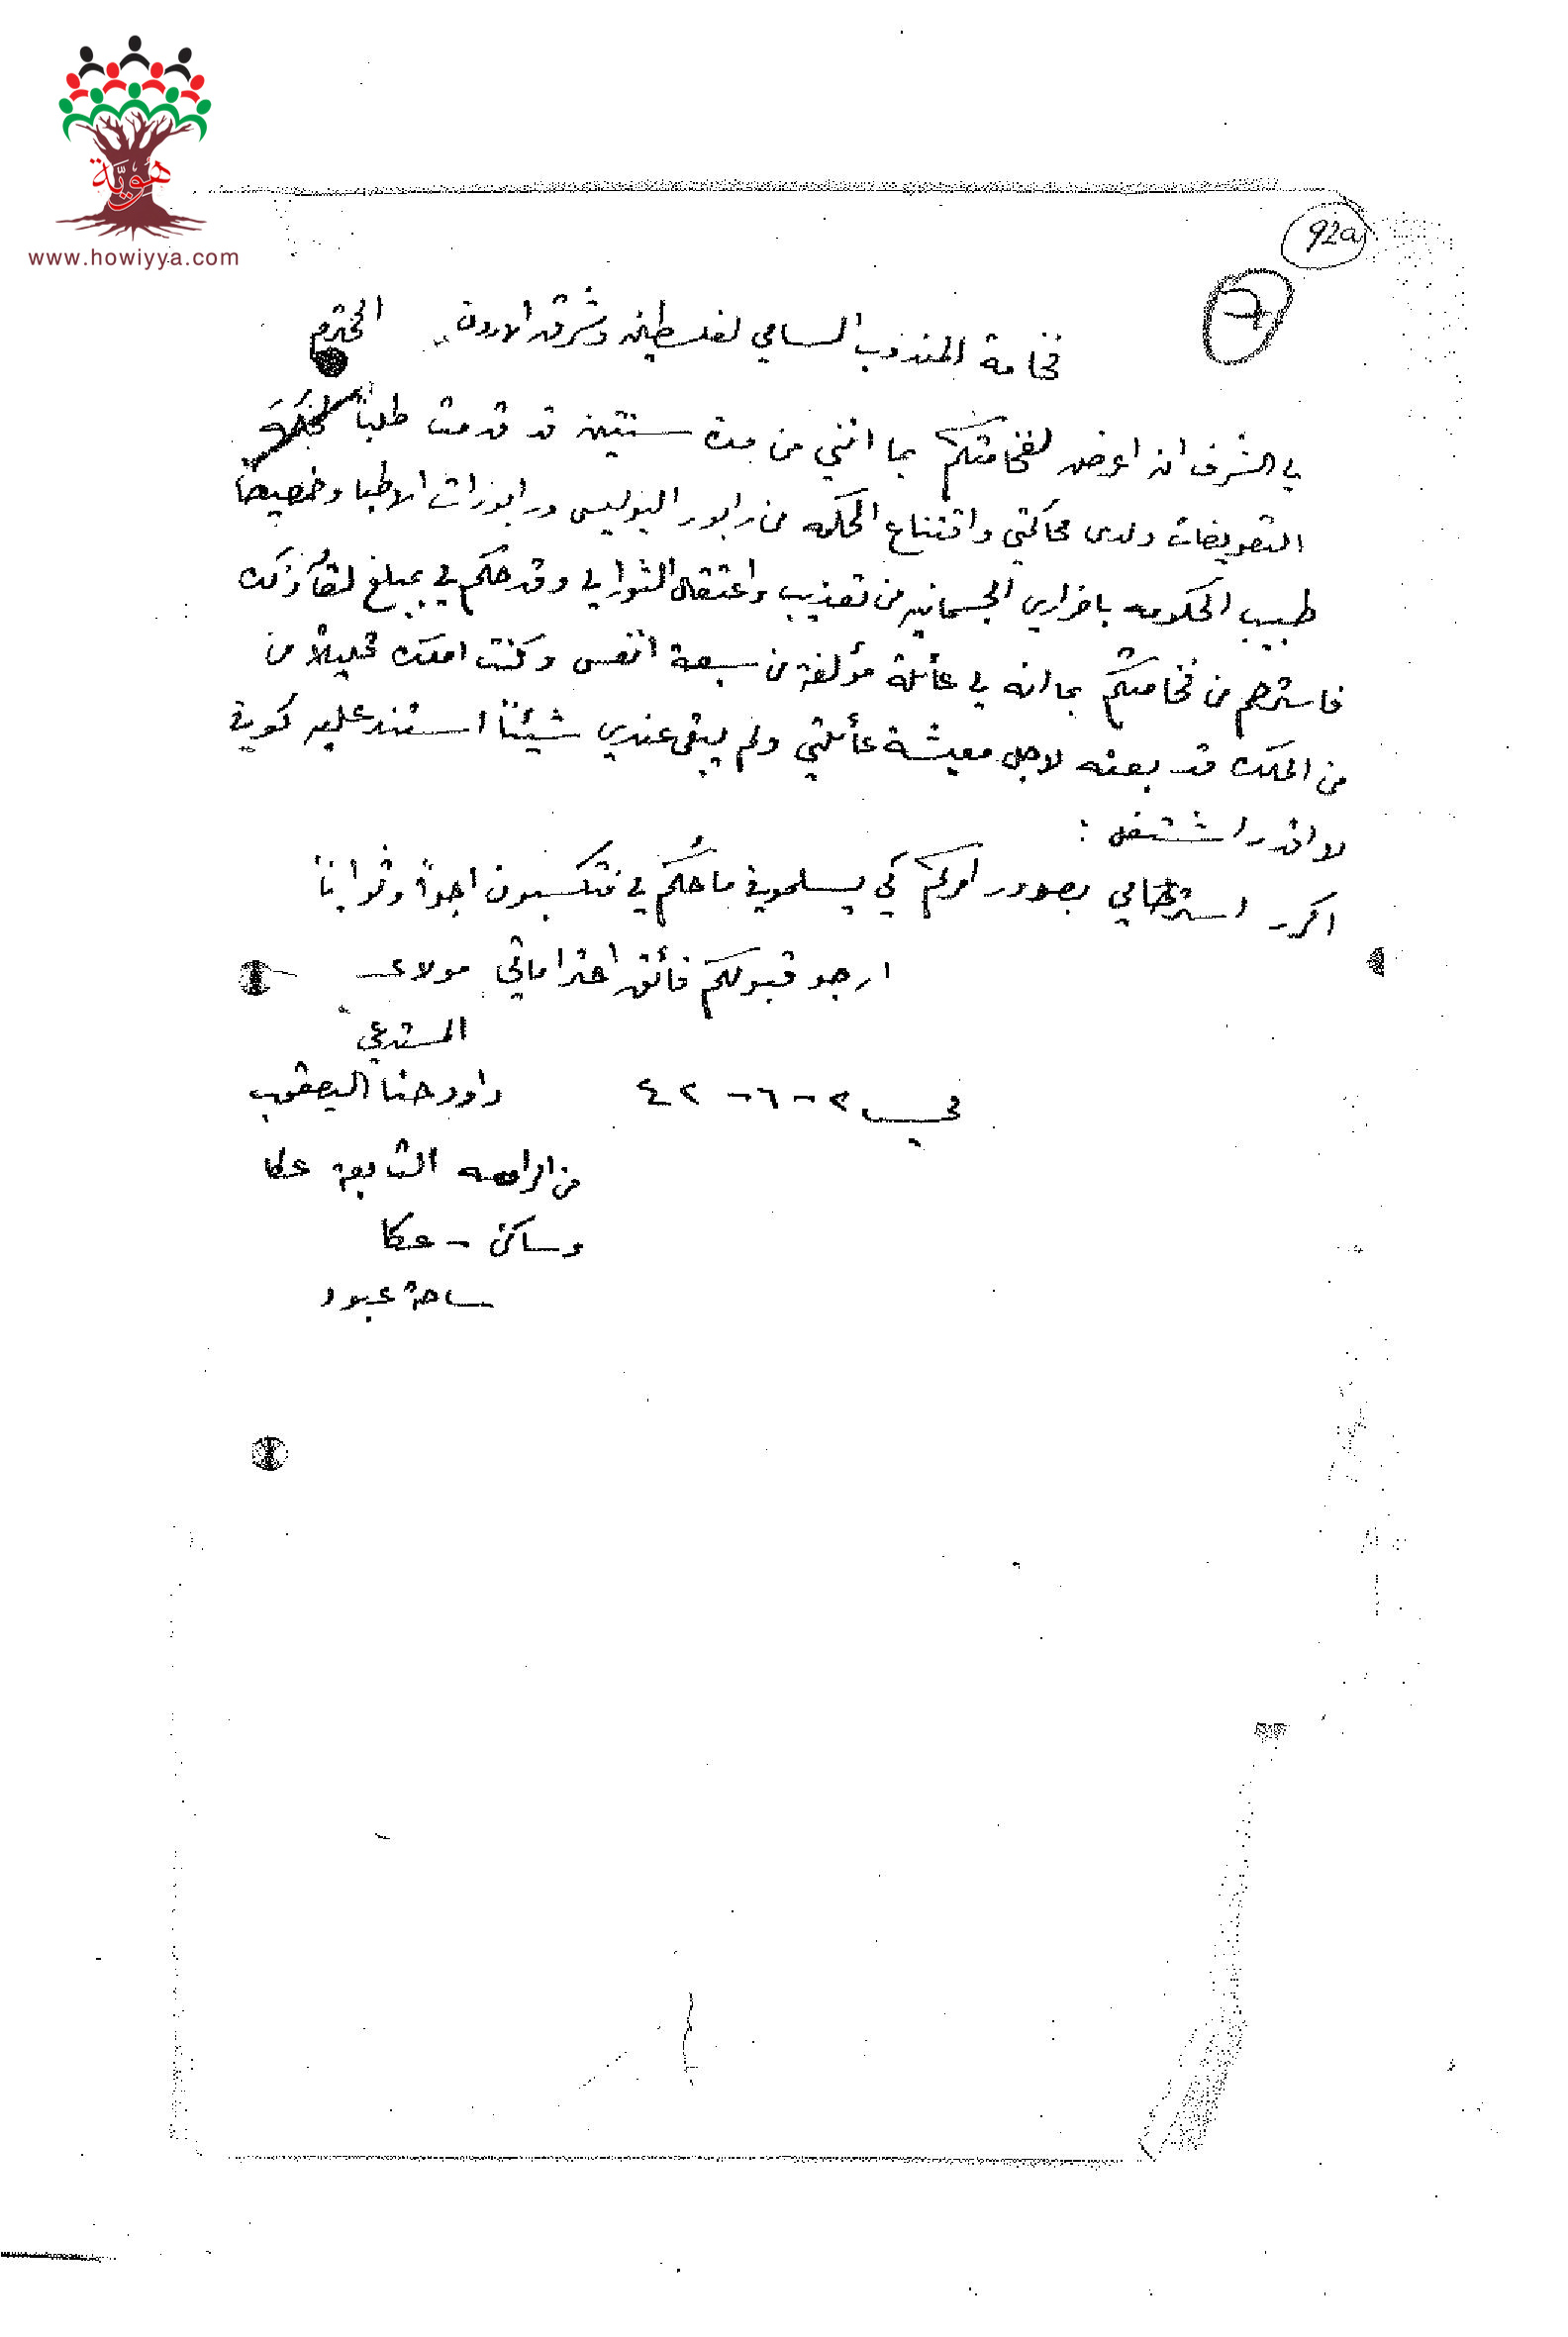 هوية
www.howiyya.com
92a
7
فخامة المندوب السامي لفلسطين وشرق الاردن المحترم
لي الشرف ان اعرض لفخامتكم بما انني من مدة سنتين قد قدمت طلباً
التعويضات ولدى محاكمتي واقتناع المحكمه من رابور البوليس ورابورات الاطبا وخصيصاً
طبيب الحكومه باضراري الجسمانيه من تعذيب واعتقال الثوار لي وقد حكم لي بمبلغ لقأ ذلك
فاسترحم من فخامتكم بما انه لي عائلة مؤلفة من سبعة انفس وكنت املك قليلاً من
من الملك قد بعته لاجل معيشة عائلتي ولم يبقى عندي شيئاً استند عليه كوني
لا اقدر اشتغل :
اكرر استرحامي بصدور امركم كي يسلموني ما حُكم لي فتكسبون اجراً وثواباً
ارجو قبولكم فائق احتراماتي مولاي
المستدعي
في ٢-٦-٤٢ داود حنا اليعقوب
من الرامه التابعة عكا
وساكن - عكا
ساحة عبود